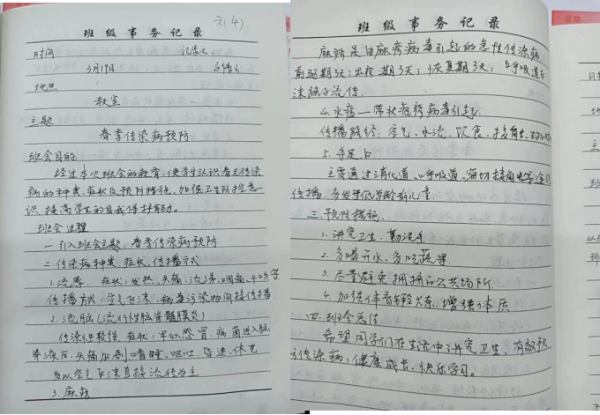 班级事务记录
时间 记录人
3月17日
地点
教室
主题
春季传染病预防
班会目的:
经过本次班会的教育,使学生认识春季传染
病的种类、症状及预防措施,加强卫生防控意
识,提高学生的自我保护能力。
班会过程
一 引入班会主题,春季传染病预防
二 传染病种类、症状、传播方式
1. 流感 症状:发热、头痛、流涕、咽痛、干咳等
传播方式:空气飞沫、病毒污染物间接传播
2. 流脑(流行性脑脊髓膜炎)
传染性较强 症状:早似感冒,病菌进入脑
脊液后,头痛加剧 嗜睡、呕吐、昏迷、休克
多以空气飞沫直接流传为主
3. 麻疹
班级事务记录
麻疹是由麻疹病毒引起的急性传染病,
前驱期3天,出疹期3天,恢复期3天,呼吸道
沫随之流传
4. 水痘—带状疱疹病毒引起
传播
5. 手足口
主要通过消化道、呼吸道、密切接触
传播,多发于低年龄前儿童
三 预防措施
1. 讲究卫生,勤洗手
2. 多喝开水、多吃蔬果
3. 尽量避免拥挤的公共场所
4. 加强体育锻炼,增强体质
四 班会总结
希望同学们在生活中讲究卫生,有效预
防传染病,健康成长,快乐学习。